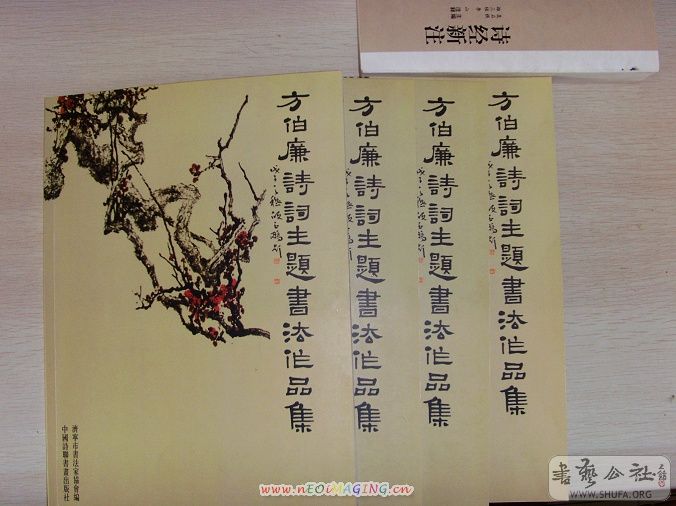 诗经新注
方伯廉詩詞主題書法作品集
濟寧市書法家協會編
中國詩聯書畫出版社
方伯廉詩詞主題書法作品集
方伯廉詩詞主題書法作品集
方伯廉詩詞主題書法作品集
www.nEOiMAGING.cn
書藝公社
WWW.SHUFA.ORG